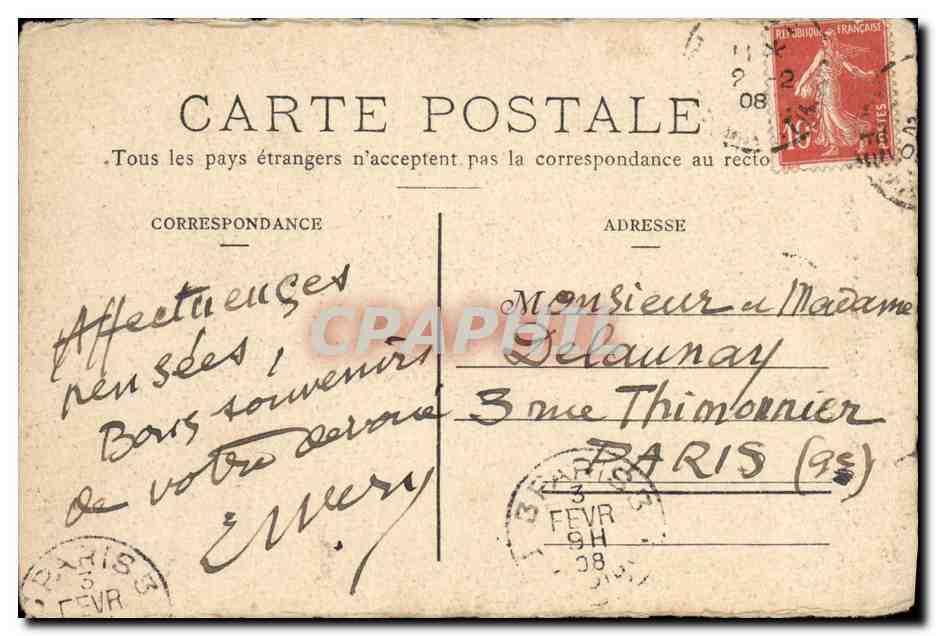 RÉPUBLIQUE FRANÇAISE
POSTES
10
2 - 2
08
CARTE POSTALE
Tous les pays étrangers n'acceptent pas la correspondance au recto
CORRESPONDANCE
Affectueuses
pensées,
Bons souvenirs
de votre dévoué
ADRESSE
Monsieur & Madame
Delaunay
3 rue Thimonnier
PARIS (9e)
CPAPHIL
PARIS 3
3
FEVR
9H
08
PARIS 3
3
FEVR